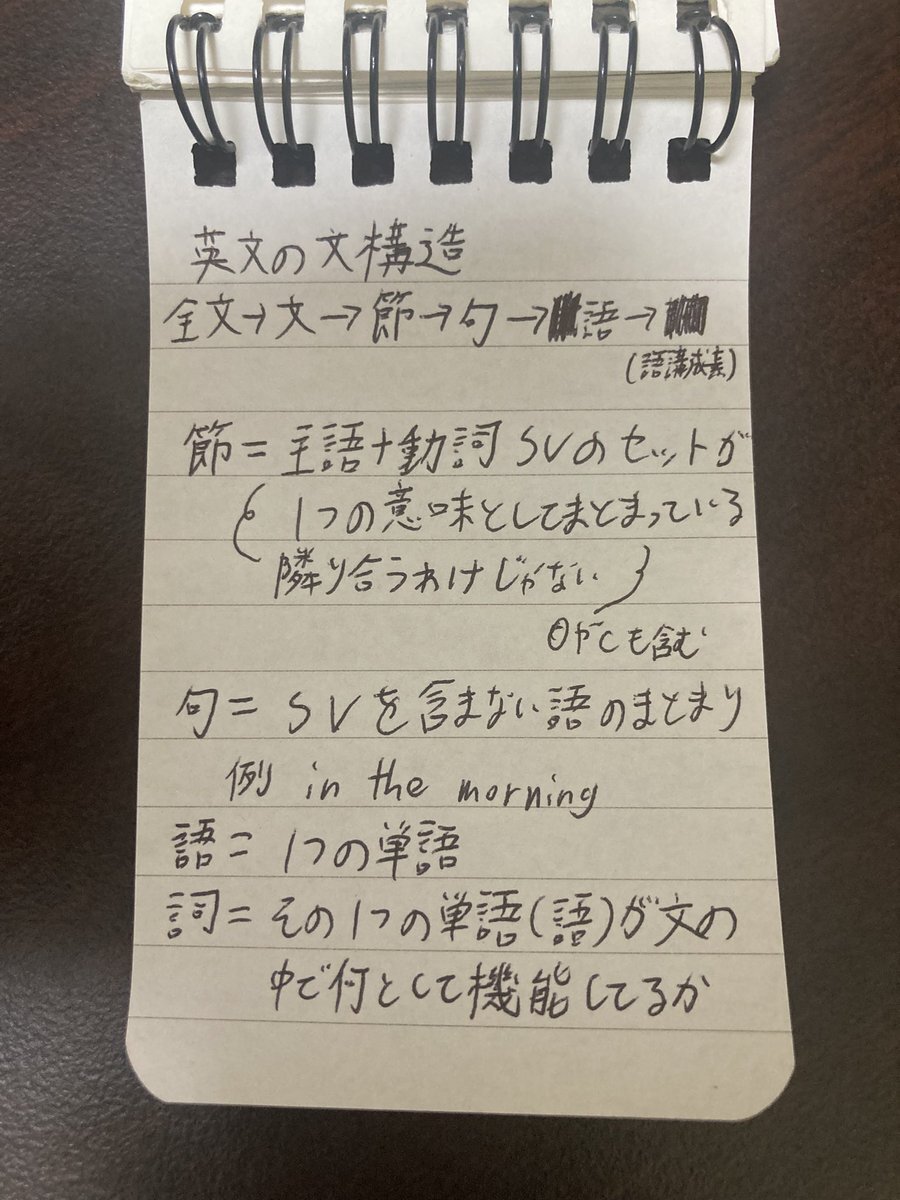 英文の文構造
全文→文→節→句→語→
(語構成素)
節=主語+動詞 SVのセットが
1つの意味としてまとまっている
隣り合うわけじゃない
OやCも含む
句=SVを含まない語のまとまり
例 in the morning
語=1つの単語
詞=その1つの単語(語)が文の
中で何として機能してるか